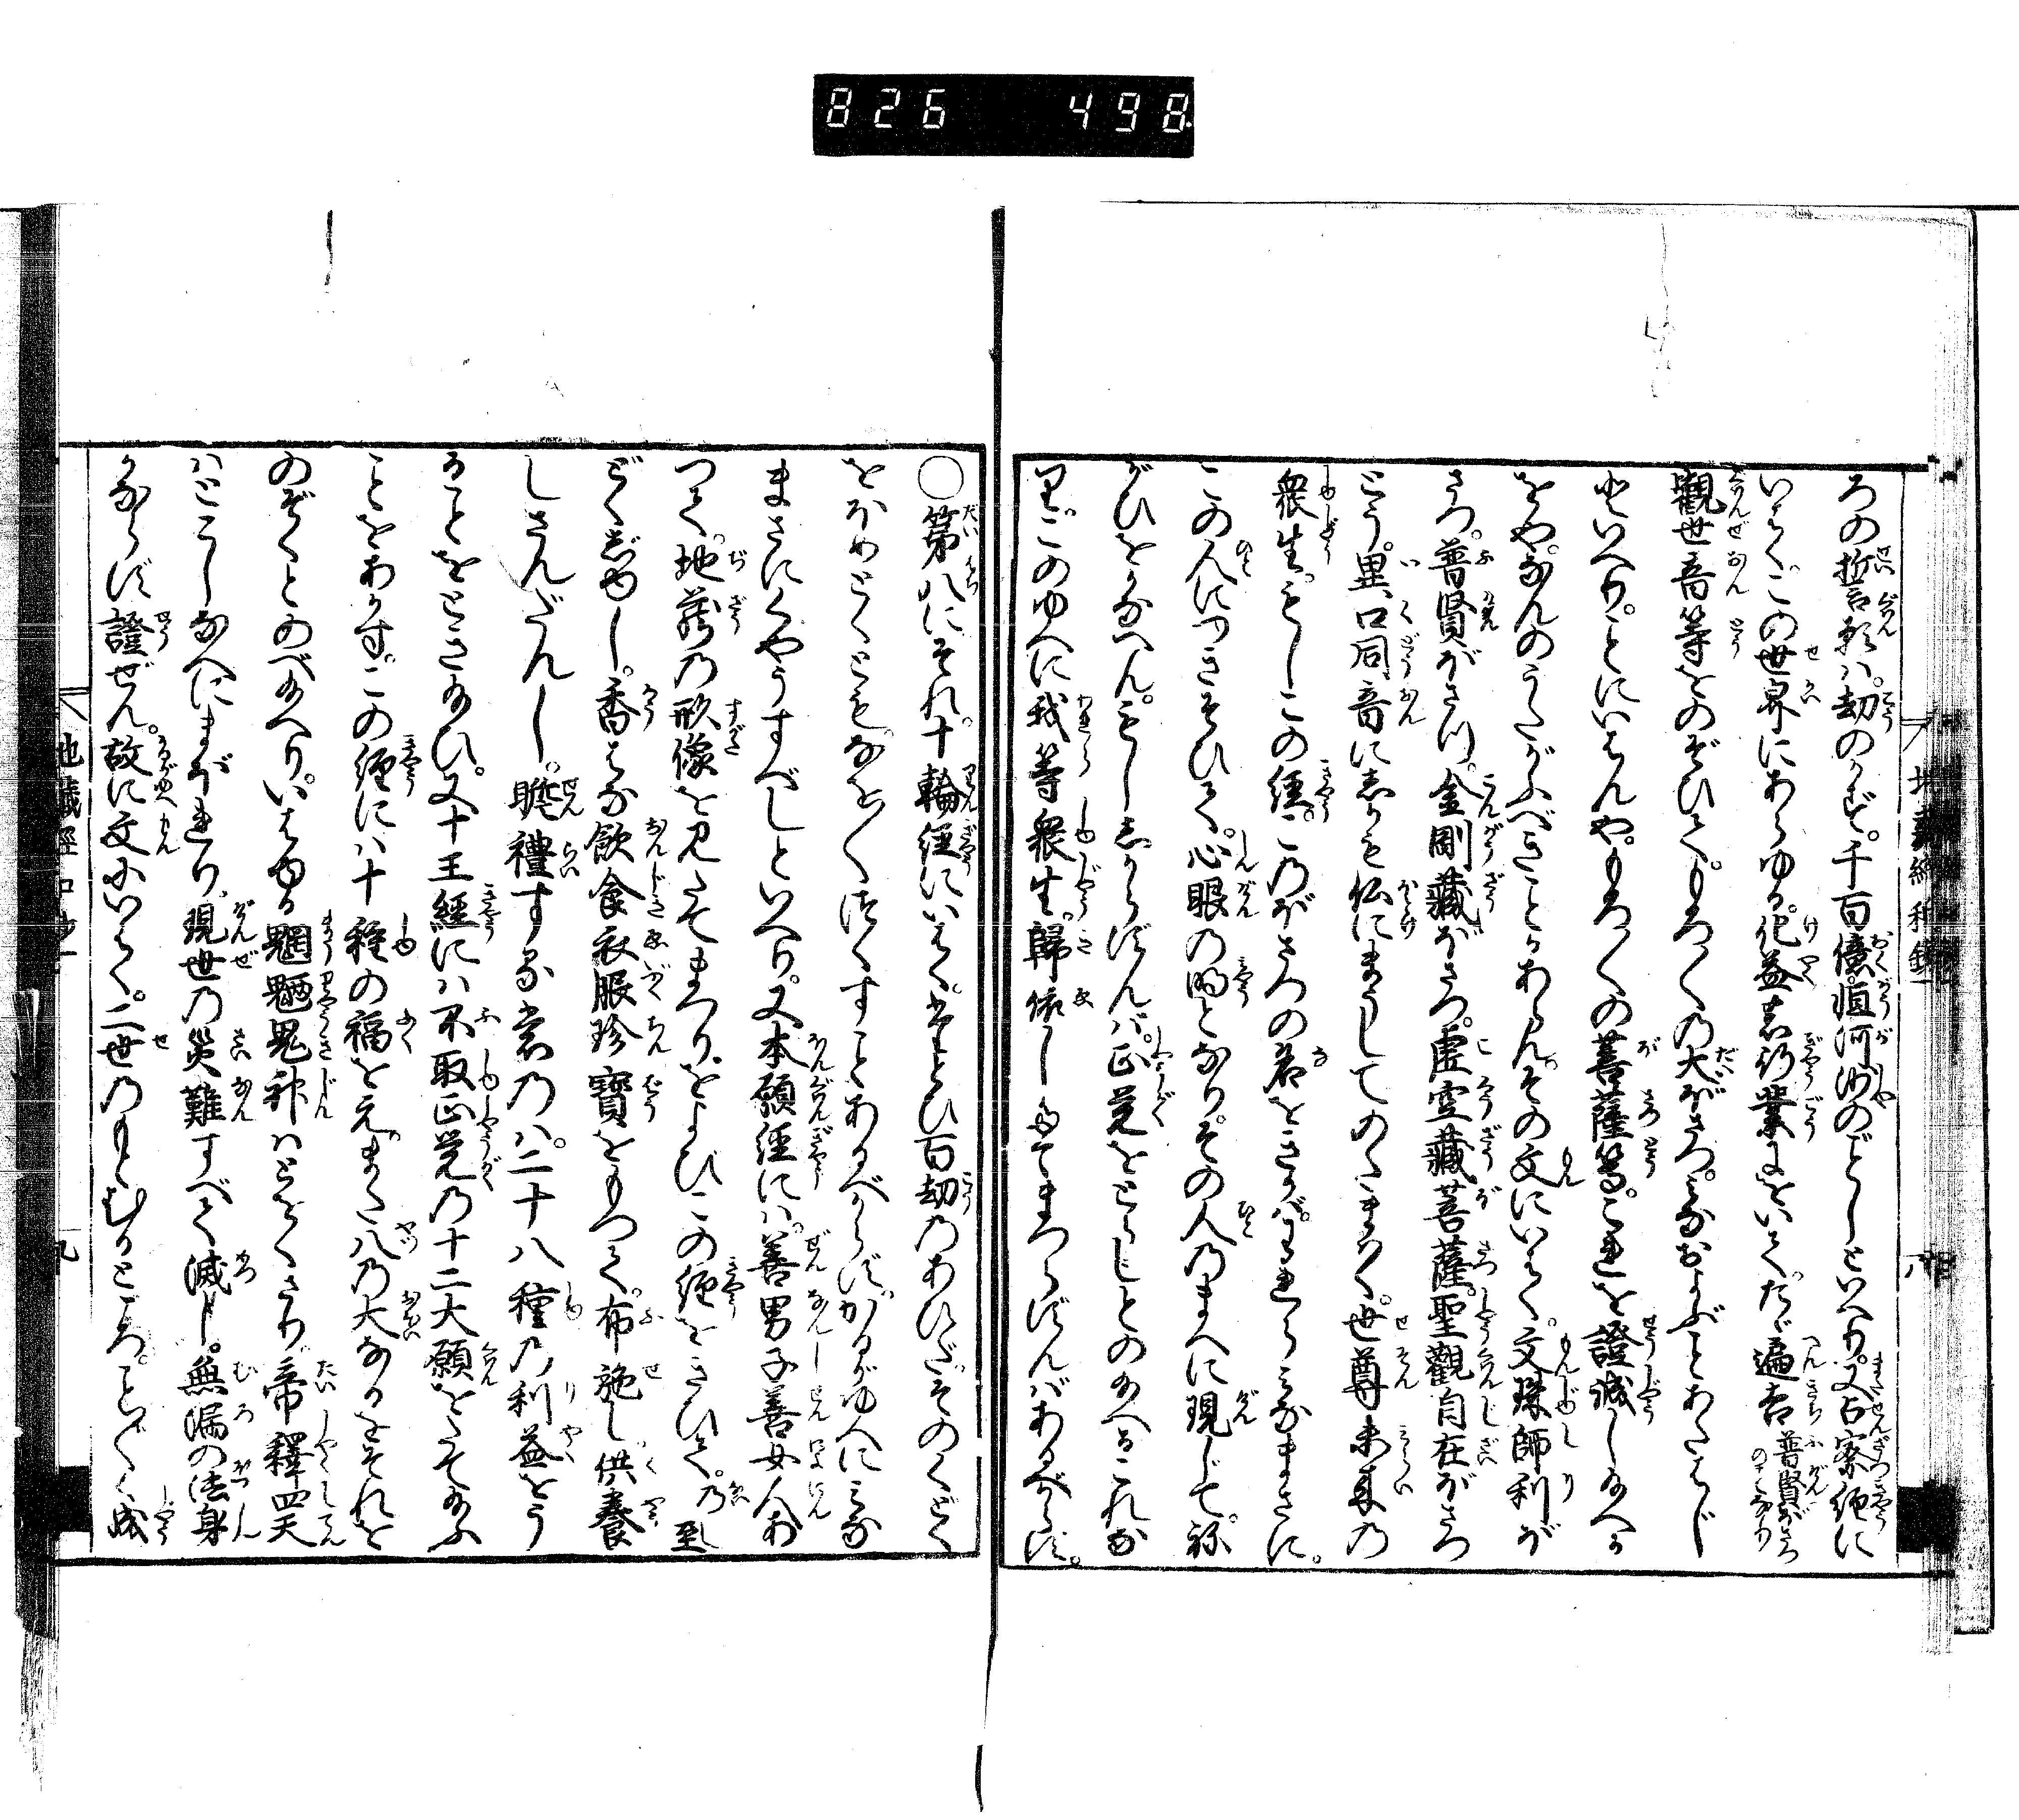 826 498
ろの誓願ハ。劫のかず。千百億。恒河沙のごとしといへり。又占察經に
いはく。この世界にあらゆる。化益その行業をいハく。たゞ遍吉普賢ぼさつのことなり
觀世音等をのぞひて。もろ〳〵乃大ぼさつ。みなおよぶことあたはじ
といへり。ことにいはんや。もろ〳〵の菩薩等。これを證誠し給へる
をや。なんのうたがふべきことかあらん。その文にいはく。文珠師利ぼ
さつ。普賢ぼさつ。金剛藏ぼさつ。虛空藏菩薩。聖觀自在ぼさつ
とう。異口同音にしかも仏にまうしてのたまハく。世尊未来の
衆生。もしこの經。乃ぼさつの名をきかば。われらみなまさに。
この人につきそひて。心眼の明となり。その人乃まへに現じて。祢
がひをかなへん。もししからずんバ。正覚をとらじとの給へるこれな
り。このゆへに我等衆生。歸依したてまつらずんバあるべからず。
○第八にそれ。十輪經にいはく。たとひ百劫乃あひだ。そのくどく
をほめとくとも。なを〳〵つくすことあるべからず。かるがゆへにみな
まさにくやうすべしといへり。又本願經にハ。善男子善女人あ
つて。地藏乃形像を見たてまつり。をよびこの經をきひて。乃至
どくじゆし。香はな飲食衣服珍寶をもつて。布施し供養
しさんだんし。瞻禮する者乃ハ。二十八種乃利益をう
ることをときたまひ。又十王經にハ不取正覚乃十二大願をたて給ふ
ことをあかす。この經にハ十種の福をえ。また八乃大なるをそれを
のぞくとのべ給へり。いはゆる魍魎鬼神ハとをくさり。帝釋四天
ハとこしなへにまぼれり。現世乃災難すべて滅し。無漏の法身
かならず證ぜん。故に文にいはく。二世乃もとむるところ。こと〴〵く成
地藏經
八
九